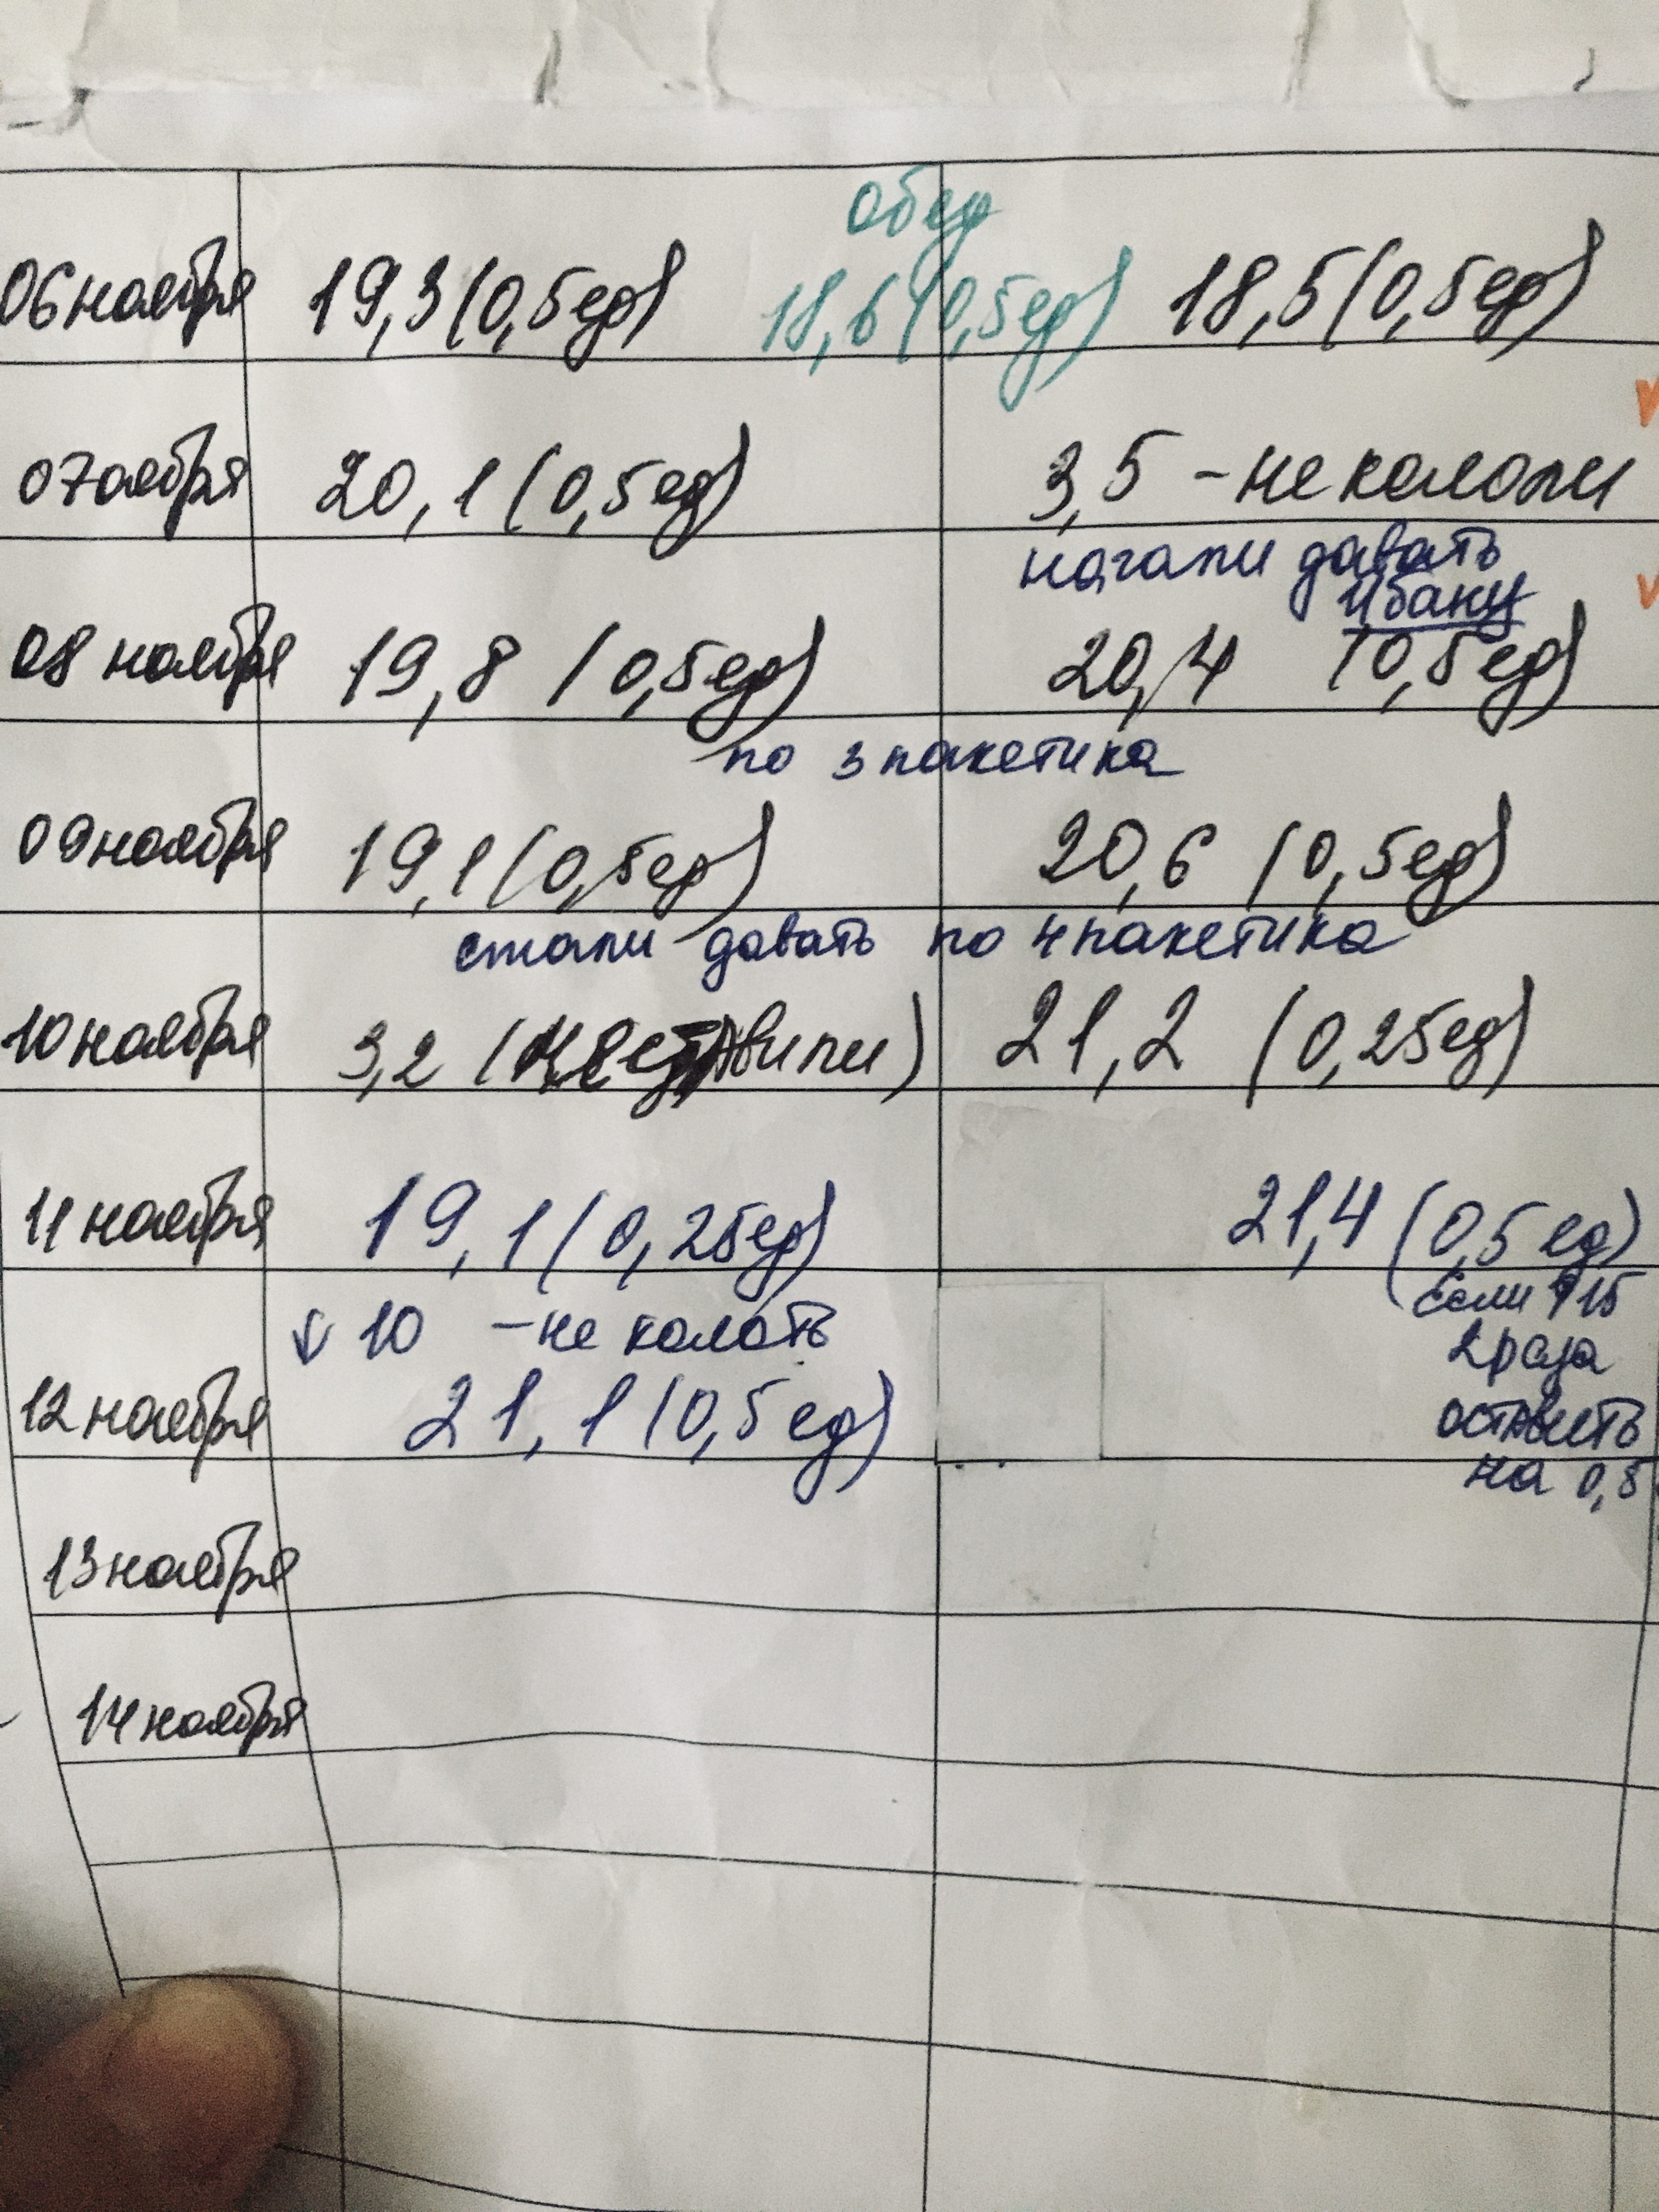 обед
06 ноября 19,3 (0,5 ед) 18,6 (0,5 ед) 18,5 (0,5 ед)
07 оября 20,1 (0,5 ед) 3,5 - не кололи
начали давать
08 ноября 19,8 (0,5 ед) 20,4 (0,5 ед)
по 3 пакетика
09 ноября 19,1 (0,5 ед) 20,6 (0,5 ед)
стали давать по 4 пакетика
10 ноября 3,2 (не ставили) 21,2 (0,25 ед)
11 ноября 19,1 (0,25 ед) 21,4 (0,5 ед)
↓ 10 - не колоть
если ↑ 15
2 раза
оставить
на 0,5
12 ноября 21,1 (0,5 ед)
13 ноября
14 ноября